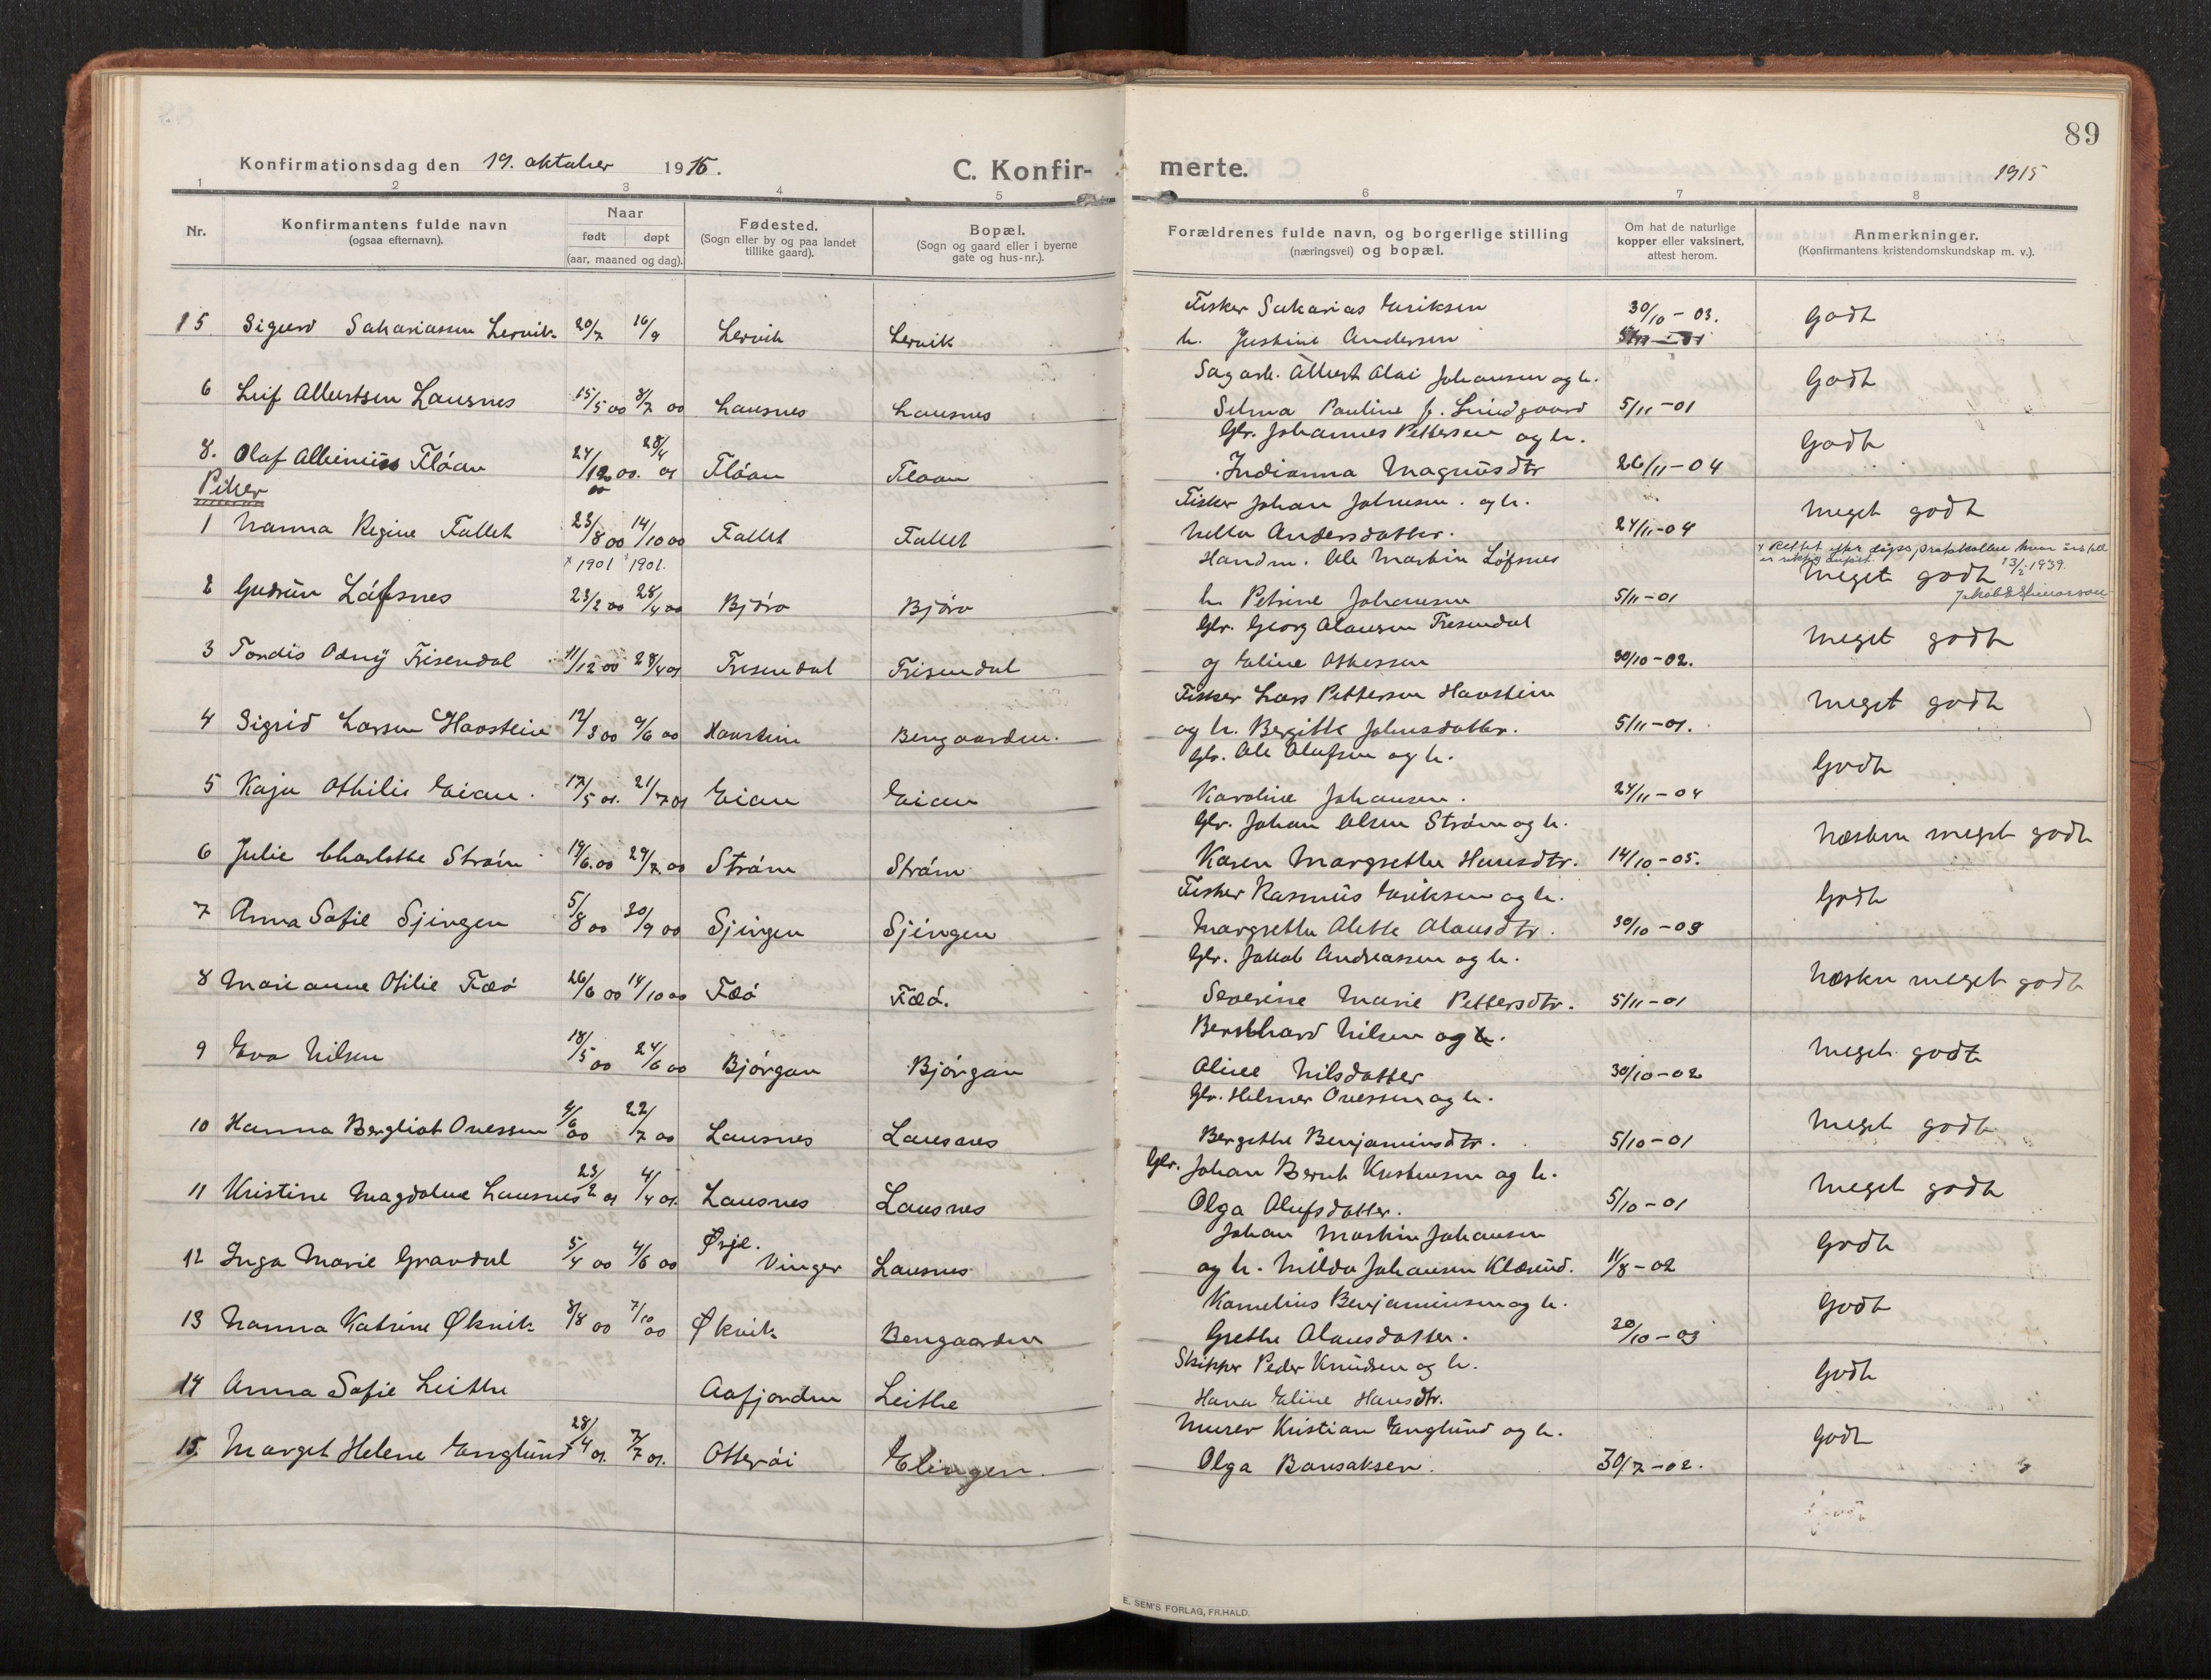 89
Konfirmationsdag den 19. oktober 1915.
C. Konfir-
merte.
1915
1 2 3 4 5 6 7 8
Nr.
Konfirmantens fulde navn
(ogsaa efternavn).
Naar
født døpt
(aar, maaned og dag).
Fødested.
(Sogn eller by og paa landet
tillike gaard).
Bopæl.
(Sogn og gaard eller i byerne
gate og hus-nr.).
Forældrenes fulde navn, og borgerlige stilling
(næringsvei) og bopæl.
Om hat de naturlige
kopper eller vaksinert,
attest herom.
Anmerkninger.
(Konfirmantens kristendomskundskap m. v.).
Fisker Sakarias Eriksen 30/10-03. Godt
5 Sigurd Sakariassen Lervik 20/7 16/9 Lervik Lervik h. Justine Andersen
Sagarb. Albert Olai Johansen og h. Godt
6 Leif Albertsen Lausnes 15/5 00 8/7 00 Lausnes Lausnes Selma Pauline f. Lindgaard 5/11-01
Gbr. Johannes Pettersen og h. Godt
8. Olaf Albinius Fløan 24/12 00. 28/4 01 Fløan Fløan Indianna Magnusdtr 26/11-04
Piker
Fisker Johan Johnsen. og h. Meget godt
1 Nanna Regine Fallet 23/8 00 14/10 00 Fallet Fallet Andersdatter. 24/11-04
x 1901 x 1901.
Handm. Ole Martin Løfsnes
x Rettet efter døpsprotokollen hvor
13/2 1939.
Meget godt
2 Gudrun Løfsnes 23/2 00 28/4 00 Bjøro Bjøro h. Petrine Johansen 5/11-01
Gbr. Georg Olausen Frisendal Meget godt
3 Tordis Odny Frisendal 11/12 00 28/4 01 Frisendal Frisendal og Eline Othessen 30/10-02.
Fisker Lars Pettersen Havstein Meget godt
4 Sigrid Larsen Havstein 12/3 00 9/6 00 Havstein Bengaarden. og h. Bergitte Johnsdatter. 5/11-01.
Gbr. Ole Olufsen og h. Godt
5 Kaja Othilie Eian. 17/5 01. 21/7 01 Eian Eian Karoline Johansen. 24/11-04
Gbr. Johan Olsen Strøm og h. Næsten meget godt
6 Julie Charlotte Strøm 19/6.00 29/7 00 Strøm Strøm Karen Margrethe Hansdtr. 14/10-05.
Fisker Rasmus Eriksen og h. Godt
7 Anna Sofie Sjingen 5/8 00 30/9 00 Sjingen Sjingen Margrethe Alette Olausdtr. 30/10-03
Gbr. Jakob Andreassen og h. Næsten meget godt
8 Marianne Otilie Fæø 26/6 00 14/10 00 Fæø Fæø. Severine Marie Pettersdtr. 5/11-01
Bernhard Nilsen og h. Meget godt
9 Eva Nilsen 18/5 00 24/6 00 Bjørgan Bjørgan Nilsdatter 30/10-02
Gbr. Helmer Ovessen og h. Meget godt
10 Hanna Bergliot Ovessen 4/6 00 22/7 00 Lausnes Lausnes Bergithe Benjaminsdtr. 5/10-01
Gbr. Johan Bernt Kristensen og h. Meget godt
11 Kristine Magdalene Lausnes 23/2 01 4/4 01. Lausnes Lausnes Olga Olufsdatter. 5/10-01
Johan Martin Johansen Godt
12 Inga Marie Gravdal 5/4 00 4/6 00 Øvje. Vinger Lausnes og h. Milda Johansen Klæsund. 11/8-02
Kornelius Benjaminsen og h. Godt
13 Nanna Katrine Økvik 8/8 00 7/10 00 Økvik Bengaarden Grethe Olausdatter. 20/10-03
Skipper Peder Knudsen og h. Godt
14 Anna Sofie Leithe Aafjorden Leithe Hana Eline Hansdtr.
Murer Kristian Englund og h. Godt
15. Marget Helene Englund 28/4 01. 7/7 01. Otterøi Elingen. Olga Bonsaksen. 30/7-02.
E. SEM'S FORLAG, FR.HALD.